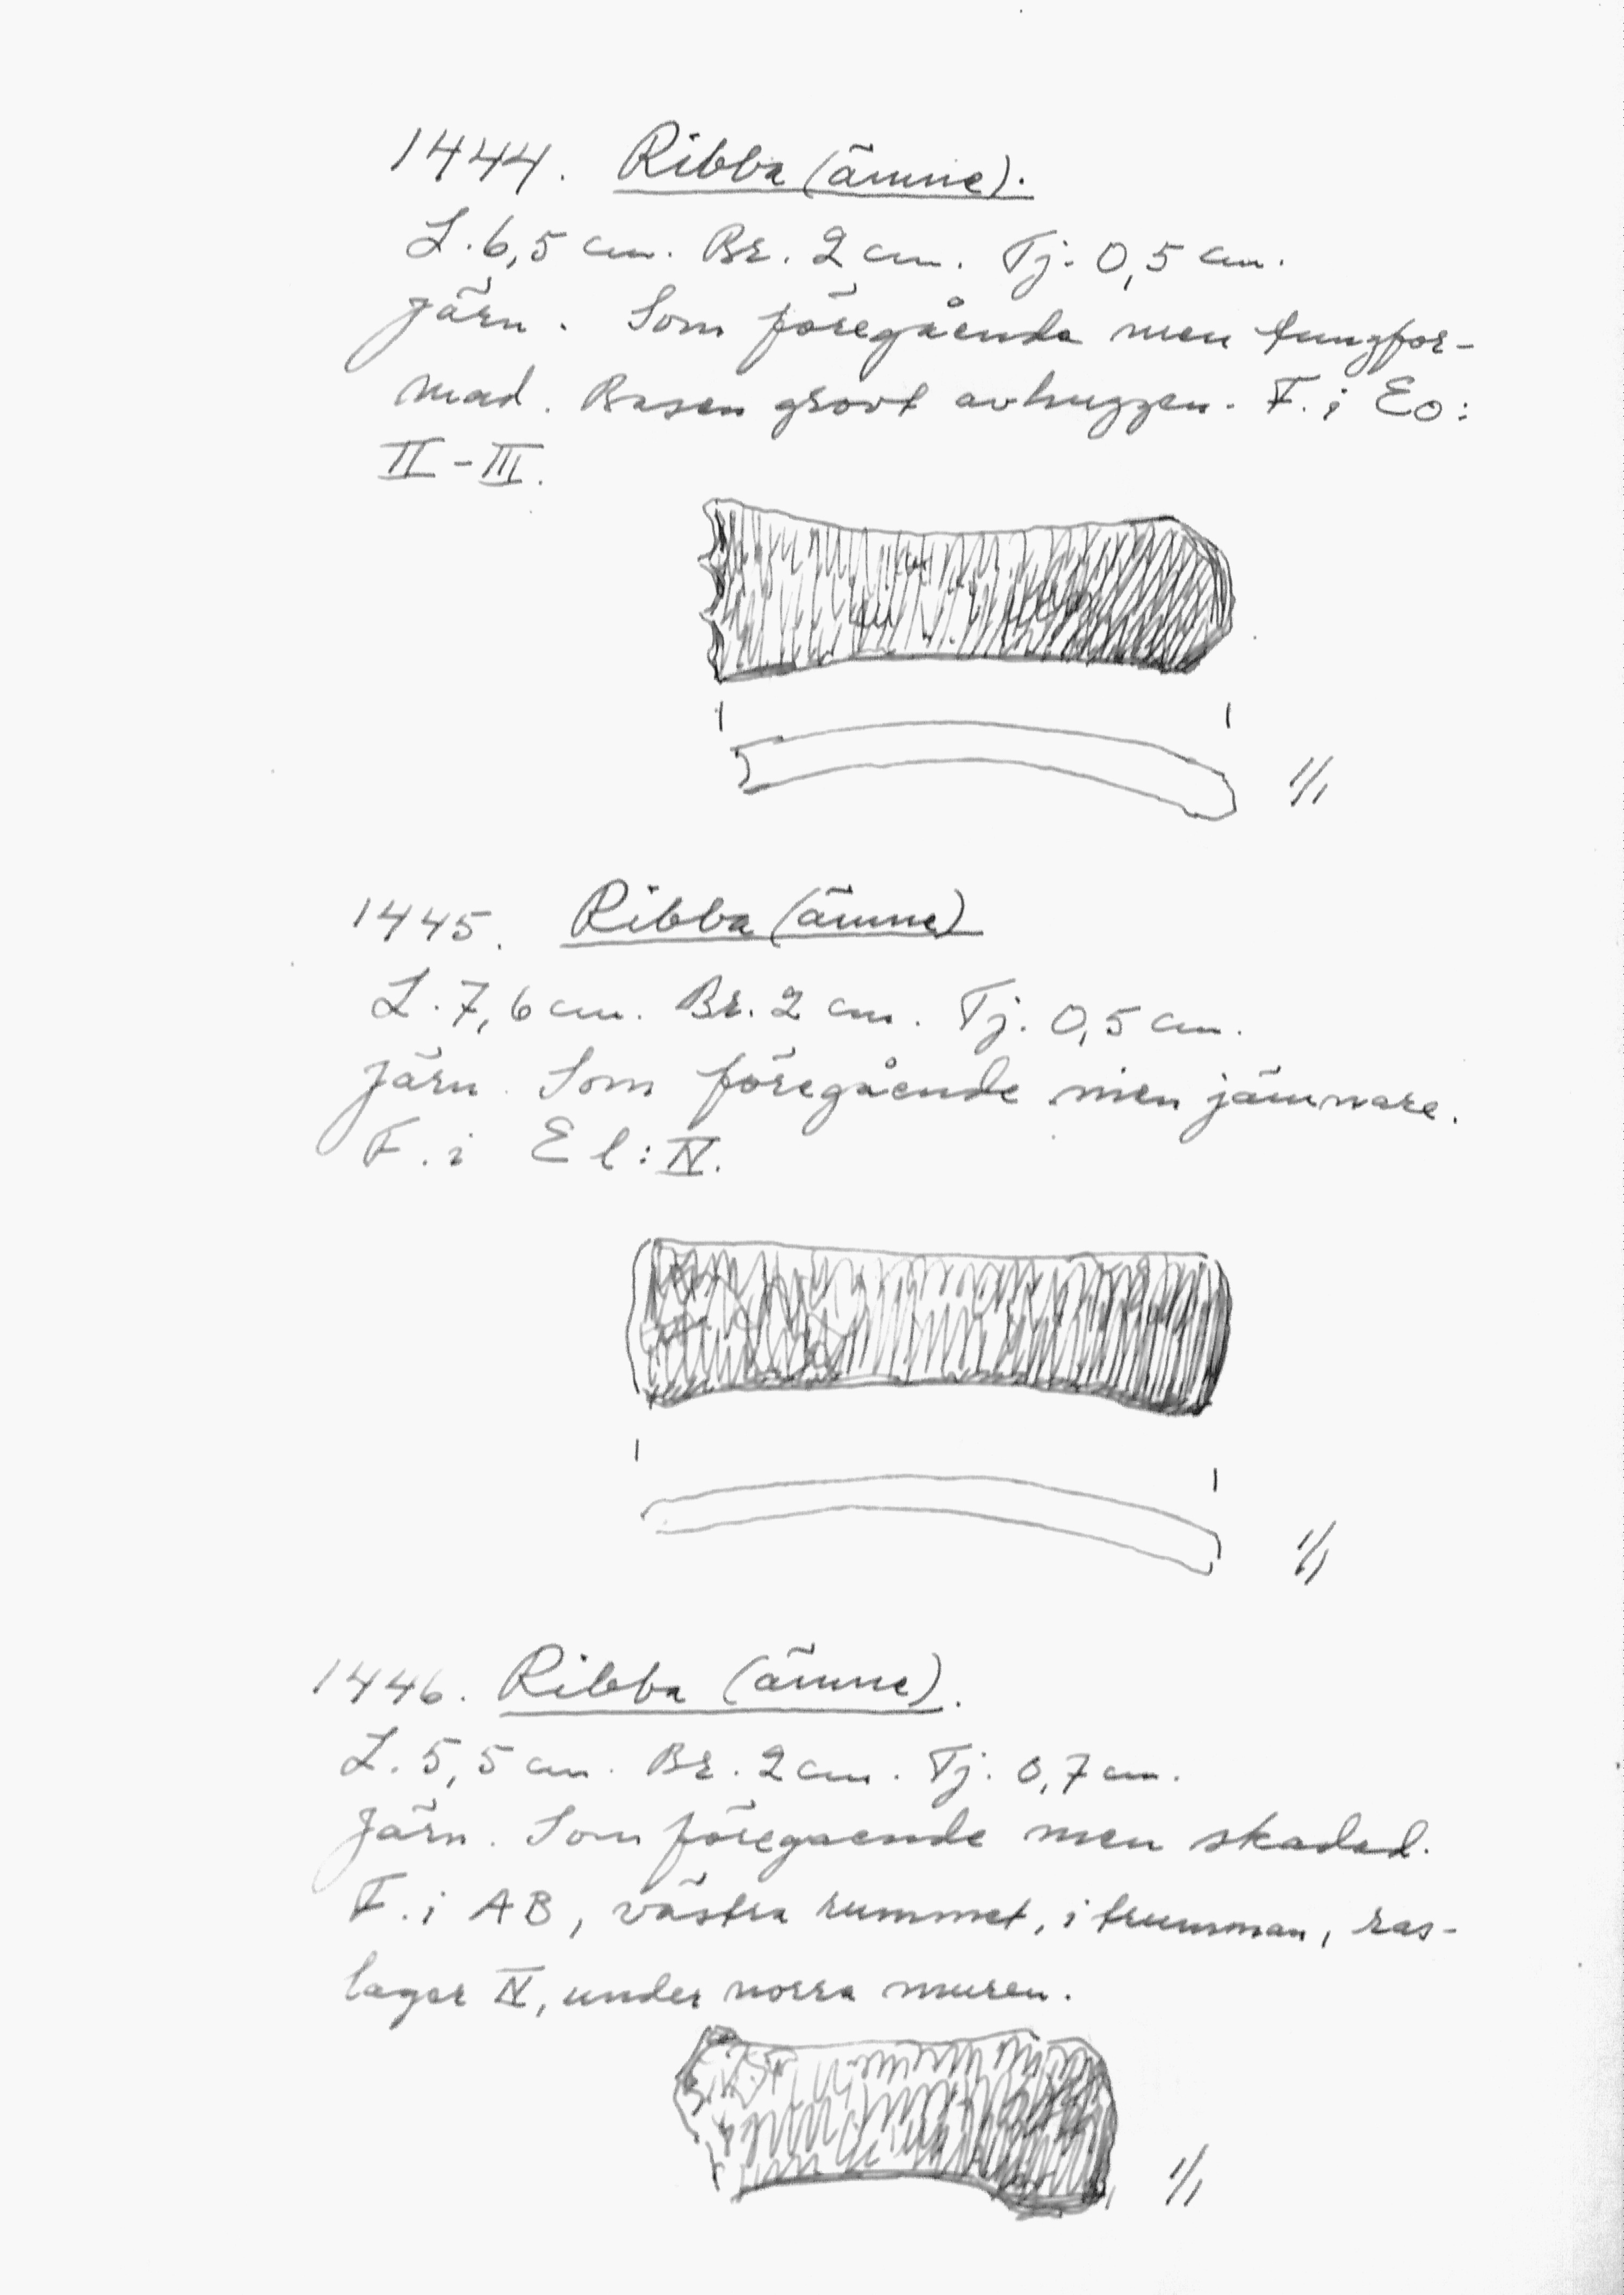 1444. Ribba (ämne).
L. 6,5 cm. Br. 2 cm. Tj. 0,5 cm.
Järn. Som föregående men tungfor-
mad. Basen grovt avhuggen. F. i Eo:
II-III.
1/1
1445. Ribba (ämne)
L. 7,6 cm. Br. 2 cm. Tj. 0,5 cm.
Järn. Som föregående men jämnare.
F. i El: IV.
1/1
1446. Ribba (ämne).
L. 5,5 cm. Br. 2 cm. Tj. 0,7 cm.
Järn. Som föregaende men skadad.
F. i AB, västra rummet, i trumman, ras-
lager IV, under norra muren.
1/1